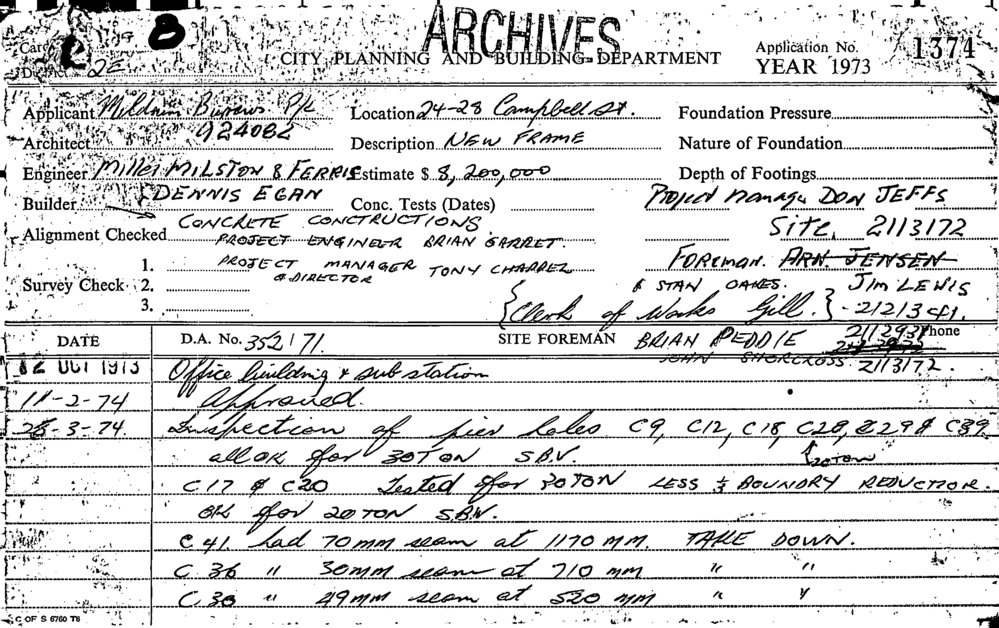 ARCHIVES
8
Card
District 2E
CITY PLANNING AND BUILDING DEPARTMENT
Application No. 1374
YEAR 1973
Applicant Mildnim Burrows P/L Location 24-28 Campbell St. Foundation Pressure
924082
Architect Description NEW FRAME Nature of Foundation
Engineer Miller MILSTON & FERRIS Estimate $ 8,200,000 Depth of Footings
Builder DENNIS EGAN Conc. Tests (Dates) Project Manager DON JEFFS
CONCRETE CONSTRUCTIONS Site, 2113172
Alignment Checked PROJECT ENGINEER BRIAN GARRET. FOREMAN. ARN. JENSEN
1. PROJECT MANAGER TONY CHAPPEL
& DIRECTOR
Survey Check 2. & STAN OAKES. JIM LEWIS
3. {Clerk of Works Gill.} -
DATE D.A. No. 352/71. SITE FOREMAN BRIAN PEDDIE 2112937 Phone
JOHN SHORCROSS 2113172.
12 OCT 1973 Office building & substation
11-2-74 Approved.
28-3-74. Inspection of pier holes C9, C12, C18, C28, C29 & C39.
all OK for 30TON S.B.V. 20TON
C17 & C20 Tested for 30TON LESS 1/3 BOUNDRY REDUCTION.
OK for 20TON S.B.V.
C 41. had 70MM seam at 1170 MM. TAKE DOWN.
C 36 " 30MM seam at 710 MM " "
C 30 " 49MM seam at 520 MM " "
C OF S 6760 T8